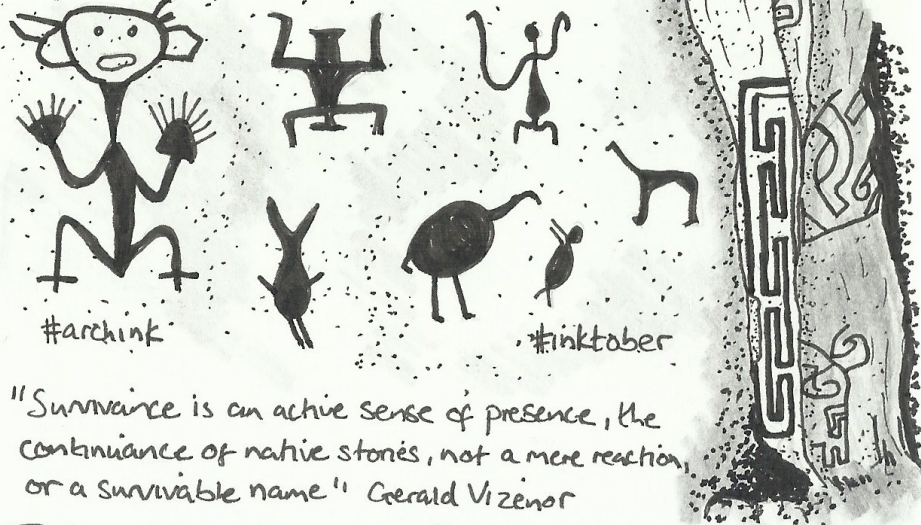 #archink
#inktober
"Survivance is an active sense of presence, the
continuance of native stories, not a mere reaction,
or a survivable name" Gerald Vizenor